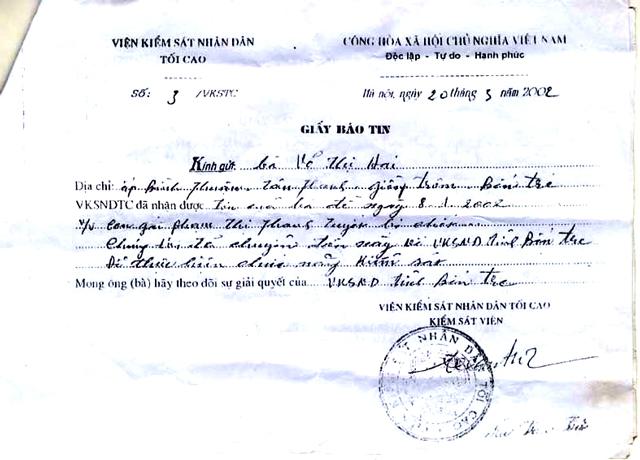 VIỆN KIỂM SÁT NHÂN DÂN
TỐI CAO
CỘNG HÒA XÃ HỘI CHỦ NGHĨA VIỆT NAM
Độc lập - Tự do - Hạnh phúc
SỐ: 3 /VKSTC
Hà nội, ngày 20 tháng 5 năm 2002
GIẤY BÁO TIN
Kính gửi: bà Võ Thị Hai
Địa chỉ: ấp Bình Thuận Tân Thanh Giồng Trôm Bến Tre
VKSNDTC đã nhận được đơn của bà đề ngày 8.1.2002
V/v con gái Phạm Thị Thanh Tuyền bị
Chúng tôi đã chuyển đơn này về VKSND tỉnh Bến Tre
Để thực hiện chức năng kiểm sát
Mong ông (bà) hãy theo dõi sự giải quyết của VKSND tỉnh Bến Tre
VIỆN KIỂM SÁT NHÂN DÂN TỐI CAO
KIỂM SÁT VIÊN
SÁT NHÂN DÂN TỐI CAO